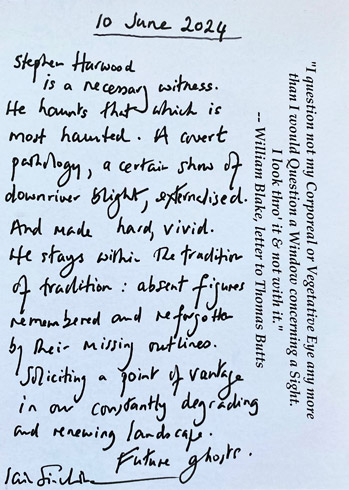 10 June 2024
Stephen Harwood
is a necessary witness.
He haunts that which is
most haunted. A covert
pathology, a certain show of
downriver blight, externalised.
And made hard, vivid.
He stays within the tradition
of tradition: absent figures
remembered and reforgotten
by their missing outlines.
Soliciting a point of vantage
in our constantly degrading
and renewing landscape.
Future ghosts.
Iain Sinclair
"I question not my Corporeal or Vegetative Eye any more
than I would Question a Window concerning a Sight.
I look thro' it & not with it."
-- William Blake, letter to Thomas Butts